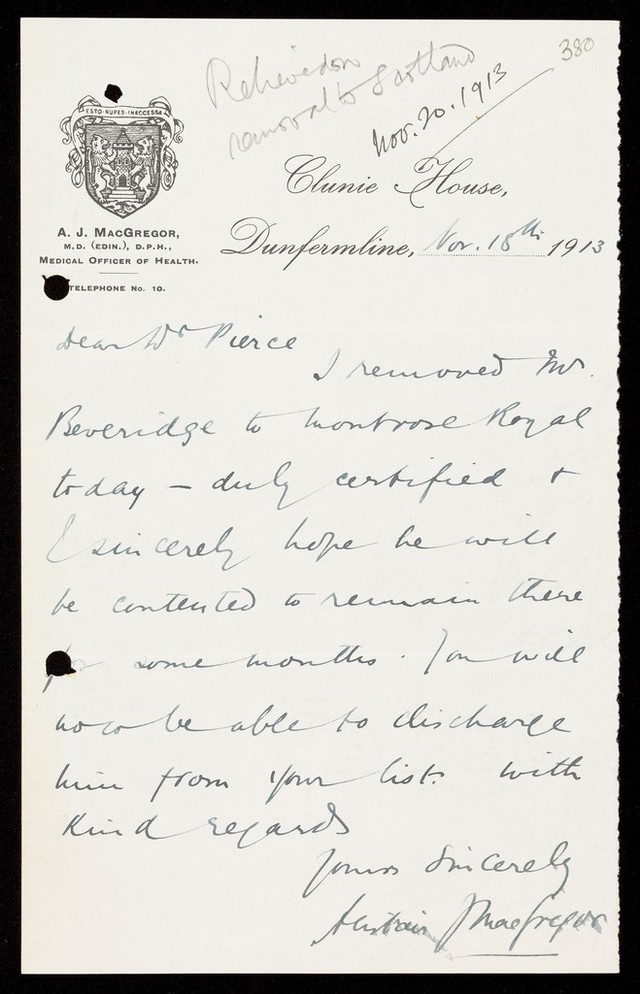 380
Relieved on
removal to Scotland
Nov. 20. 1913
ESTO RUPES INACCESSA
A. J. MACGREGOR,
M.D. (EDIN.), D.P.H.,
MEDICAL OFFICER OF HEALTH.
TELEPHONE No. 10.
Clunie House,
Dunfermline, Nov. 18th 1913
Dear Dr Pierce
I removed Mr.
Beveridge to Montrose Royal
today — duly certified &
I sincerely hope he will
be contented to remain there
for some months. You will
now be able to discharge
him from your list. With
Kind regards
Yours Sincerely
Alistair J MacGregor